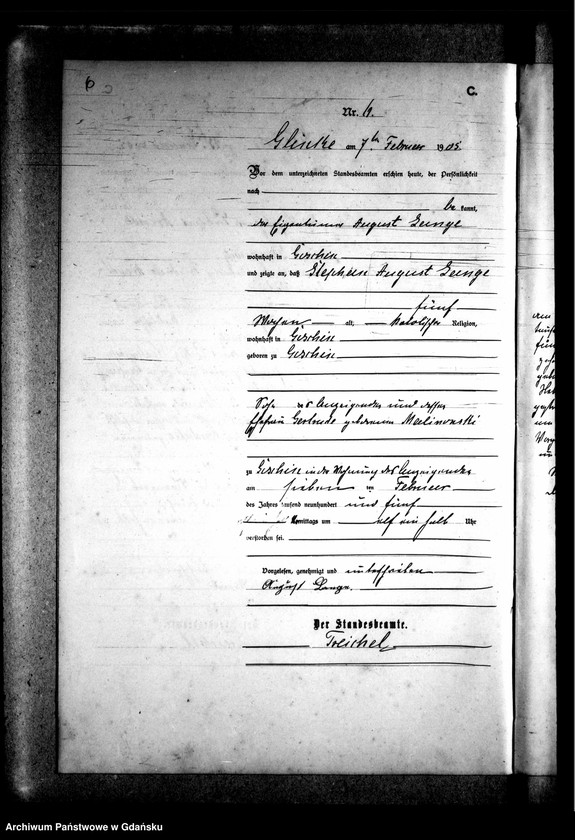 6
C.
Nr. 6.
Glincke am 7ten Februar 1905.
Vor dem unterzeichneten Standesbeamten erschien heute, der Persönlichkeit
nach
be kannt,
der Eigentümer August Lange
wohnhaft in
und zeigte an, daß Stephan August Lange
fünf
Wochen alt, katolischer Religion,
wohnhaft in
geboren zu
Sohn des Anzeigenden und dessen
Ehefrau Gertrude geborenen Malinowski
zu in der Wohnung des Anzeigenden
am sieben ten Februar
des Jahres tausend neunhundert und fünf
Vormittags um elf ein halb Uhr
verstorben sei.
Vorgelesen, genehmigt und unterschrieben
August Lange.
Der Standesbeamte.
Treichel
Archiwum Państwowe w Gdańsku